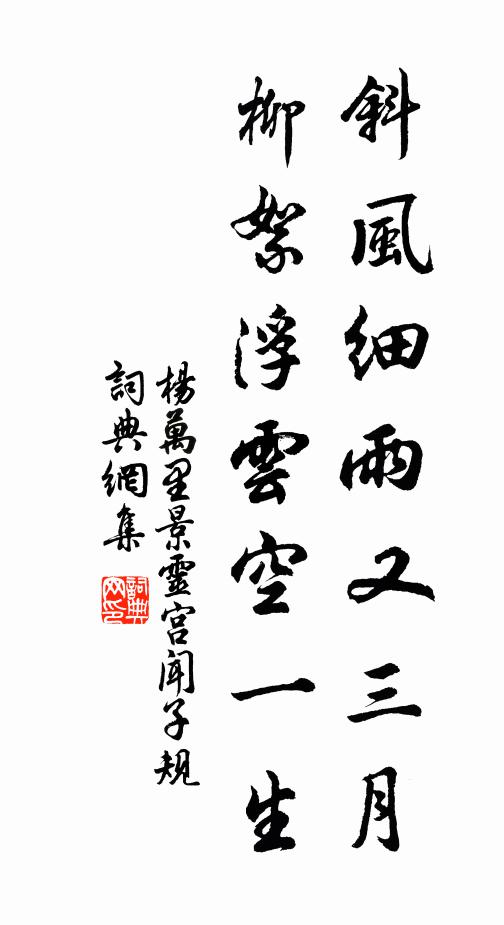 斜風細雨又三月
柳絮浮雲空一生
楊萬里景靈宮聞子規
詞典網集
詞典網印